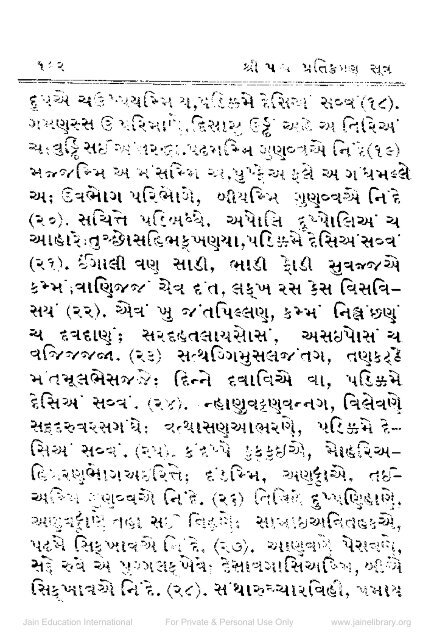 ૧૮૨ શ્રી પંચ પ્રતિક્રમણ સૂત્ર
દૂપએ ચઉપ્પયમ્મિ ય, પડિક્કમે દેસિઅં સવ્વં (૧૮).
ગમણુસ્સ ઉ પરિમાણે, દિસાસુ ઉડ્ઢં અહે અ તિરિઅં
ચ; વુડ્ઢિ સઈઅંતરદ્ધા, પઢમમ્મિ ગુણુવ્વએ નિંદે (૧૯)
મજ્જમ્મિ અ મંસમ્મિ અ, પુપ્ફે અ ફલે અ ગંધમલ્લે
અ; ઉવભોગ પરિભોગે, બીયમ્મિ ગુણુવ્વએ નિંદે
(૨૦). સચિત્તે પડિબધ્ધે, અપોલિ દુપ્પોલિઅં ચ
આહારે; તુચ્છોસહિભક્ખણયા, પડિક્કમે દેસિઅં સવ્વં
(૨૧). ઈંગાલી વણ સાડી, ભાડી ફોડી સુવજ્જએ
કમ્મં; વાણિજ્જં ચેવ દંત, લક્ખ રસ કેસ વિસવિ-
સયં (૨૨). એવં ખુ જંતપિલ્લણ, કમ્મં નિલ્લંછણં
ચ દવદાણં; સરદહતલાયસોસં, અસઇપોસં ચ
વજ્જિજ્જા. (૨૩) સત્થગ્ગિમુસલજંતગ, તણકટ્ઠે
મંતમૂલભેસજ્જે; દિન્ને દવાવિએ વા, પડિક્કમે
દેસિઅં સવ્વં. (૨૪). ન્હાણુવટ્ટણવન્નગ, વિલેવણે
સદ્દરુવરસગંધે; વત્થાસણઆભરણે, પડિક્કમે દે-
સિઅં સવ્વં. (૨૫). કંદપ્પે કુક્કુઇએ, મોહરિઅ-
હિગરણભોગઅઇરિત્તે; દંડમ્મિ, અણટ્ઠાએ, તઈ-
અમ્મિ ગુણવ્વએ નિંદે. (૨૬) તિવિહે દુપ્પણિહાણે,
અણવટ્ઠાણે તહા સઈ વિહૂણે; સામાઇઅવિતહકએ,
પઢમે સિક્ખાવએ નિંદે. (૨૭). આણવણે પેસવણે,
સદ્દે રુવે અ પુગ્ગલક્ખેવે; દેસાવગાસિઅમ્મિ, બીએ
સિક્ખાવએ નિંદે. (૨૮). સંથારુચ્ચારવિહી, પમાય
Jain Education International For Private & Personal Use Only www.jainelibrary.org